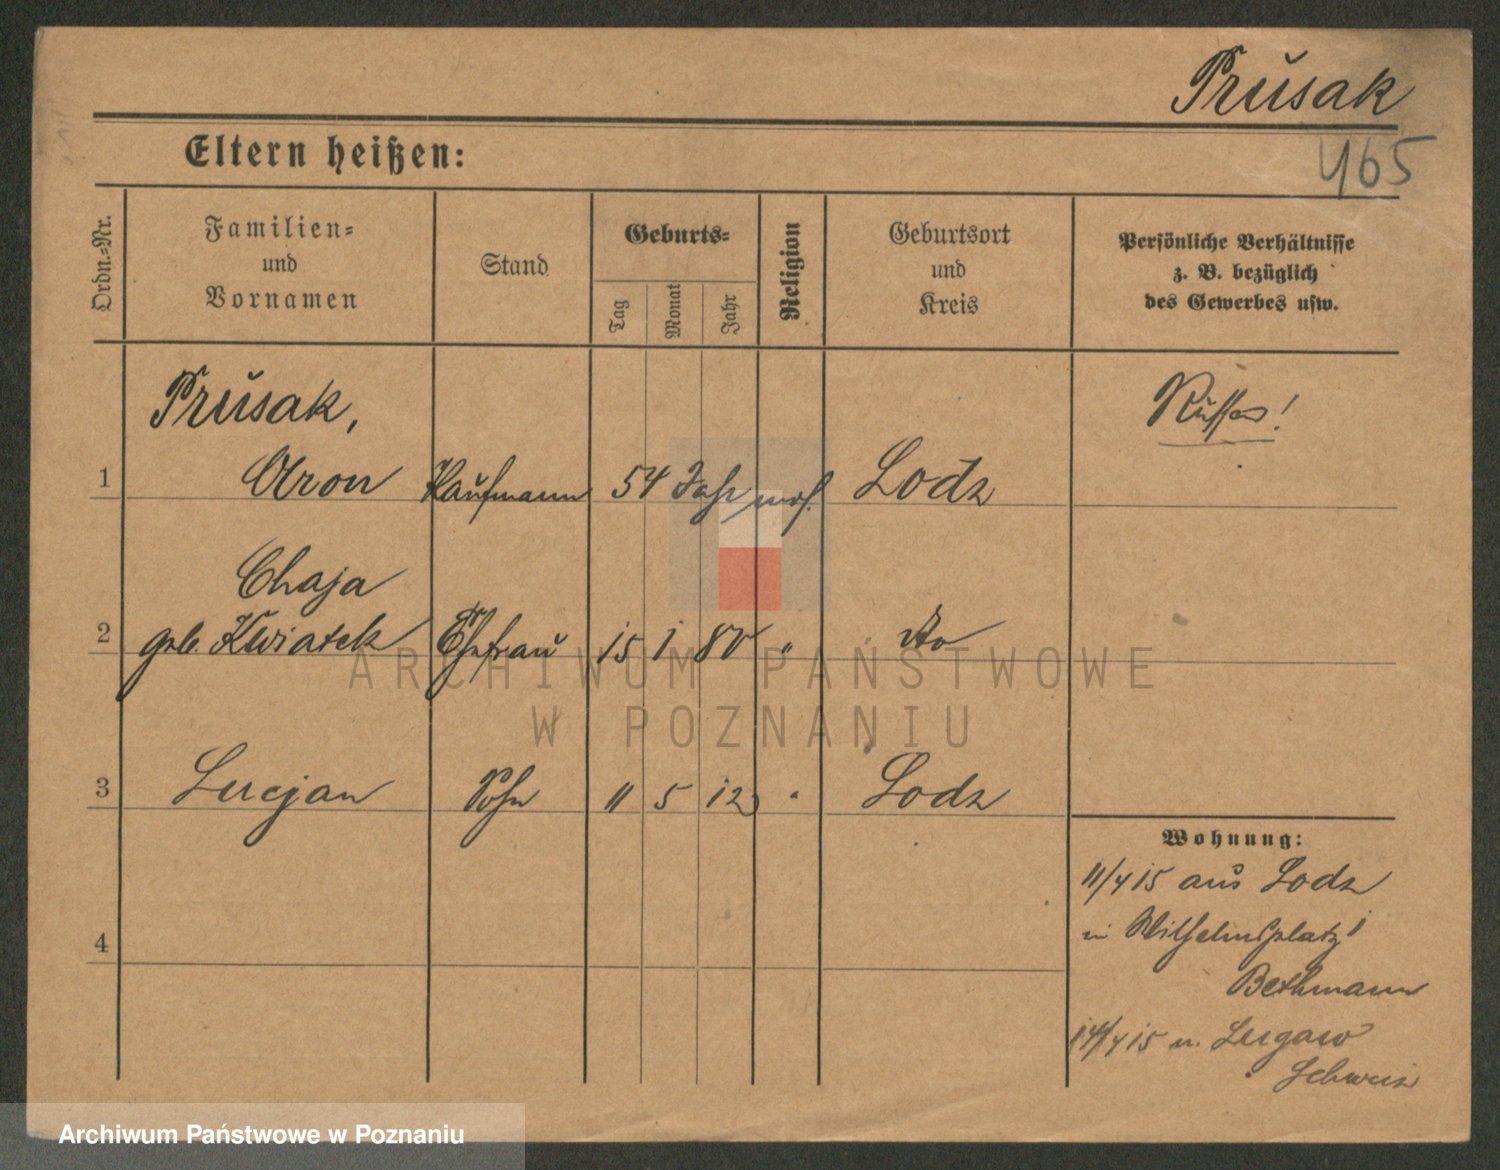 Prusak
465
Eltern heißen:
Ordn.-Nr.
Familien- und Vornamen
Stand
Geburts-
Tag
Monat
Jahr
Religion
Geburtsort und Kreis
Persönliche Verhältnisse
z. B. bezüglich
des Gewerbes usw.
Prusak,
Russen!
1 Aron Kaufmann 54 Jahr mos. Lodz
Chaja
2 geb. Kwiatek Ehefrau 15 1 80 " do
ARCHIWUM PAŃSTWOWE
W POZNANIU
3 Lucjan Sohn 11 5 12 " Lodz
Wohnung:
11/4 15 aus Lodz
in Wilhelmsplatz 1
4
Bethmann
14/4 15 n. Lugano
Schweiz
Archiwum Państwowe w Poznaniu